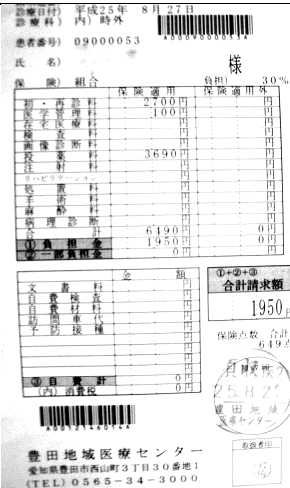 診療日付) 平成25年 8月27日
診療科) 内) 時外
A0009000053A
患者番号) 09000053
氏 名)
様
保 険) 組合 負担) 30%
保険適用 保険適用外
初・再診料 2700円 円
医学管理料 100円 円
在宅医療料 円 円
検査料 円 円
画像診断料 円 円
投薬料 3690円 円
注射料 円 円
リハビリテーション 円 円
処置料 円 円
手術料 円 円
麻酔料 円 円
病理診断 円 円
合計 6490円 0円
①負担金 1950円 0円
②一部負担金 円
金額
文書料 円
自費検査 円
自費材料 円
訪問車代 円
予防接種 円
③自費計 0円
(内)消費税 0円
①+②+③
合計請求額
1950円
保険点数 合計
649点
25.8.2
豊田地域
医療センター
取扱者印
豊田地域医療センター
愛知県豊田市西山町3丁目30番地1
(TEL) 0565-34-3000